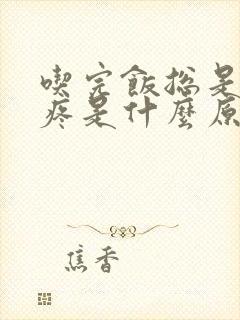 喫完飯捴是
疼是什麼原
焦香